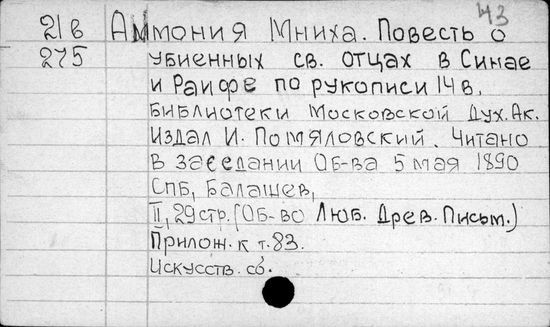 43
21 в Аммония Мниха. Повесть о
275 убиенных св. отцах в Синае
и Раифе по рукописи 14 в.
Библиотеки Московской Дух. Ак.
Издал И. Помяловский. Читано
в заседании Об-ва 5 мая 1890
СПб, Балашев,
II, 29 стр. (Об-во Люб. Древ. Письм.)
Прилож. к т. 83.
Искусств. со.